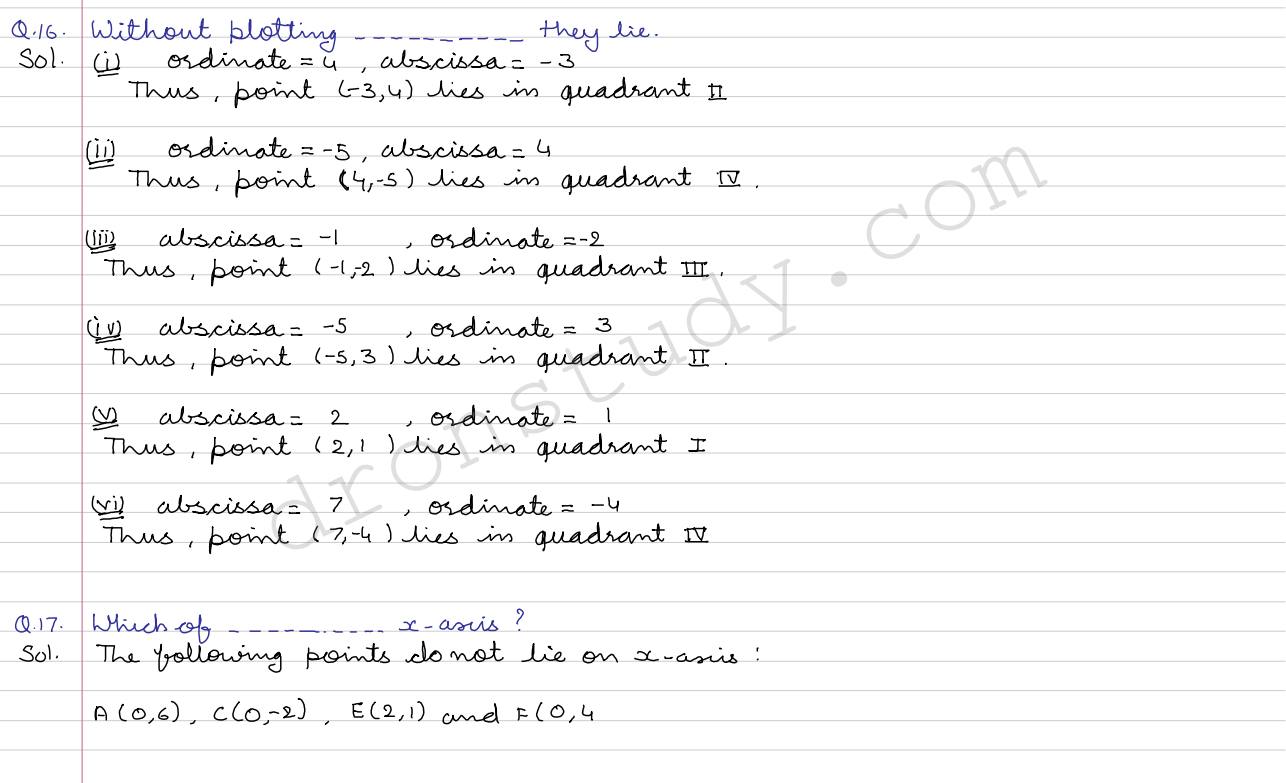 Q.16. Without plotting __________ they lie.
Sol. (i) ordinate = 4 , abscissa = -3
Thus , point (-3,4) lies in quadrant II
(ii) ordinate = -5 , abscissa = 4
Thus , point (4,-5) lies in quadrant IV .
(iii) abscissa = -1 , ordinate = -2
Thus , point (-1,-2) lies in quadrant III .
(iv) abscissa = -5 , ordinate = 3
Thus , point (-5,3) lies in quadrant II .
(v) abscissa = 2 , ordinate = 1
Thus , point (2,1) lies in quadrant I
(vi) abscissa = 7 , ordinate = -4
Thus , point (7,-4) lies in quadrant IV
Q.17. Which of __________ x-axis ?
Sol. The following points do not lie on x-axis :
A(0,6) , C(0,-2) , E(2,1) and F(0,4
dronstudy.com